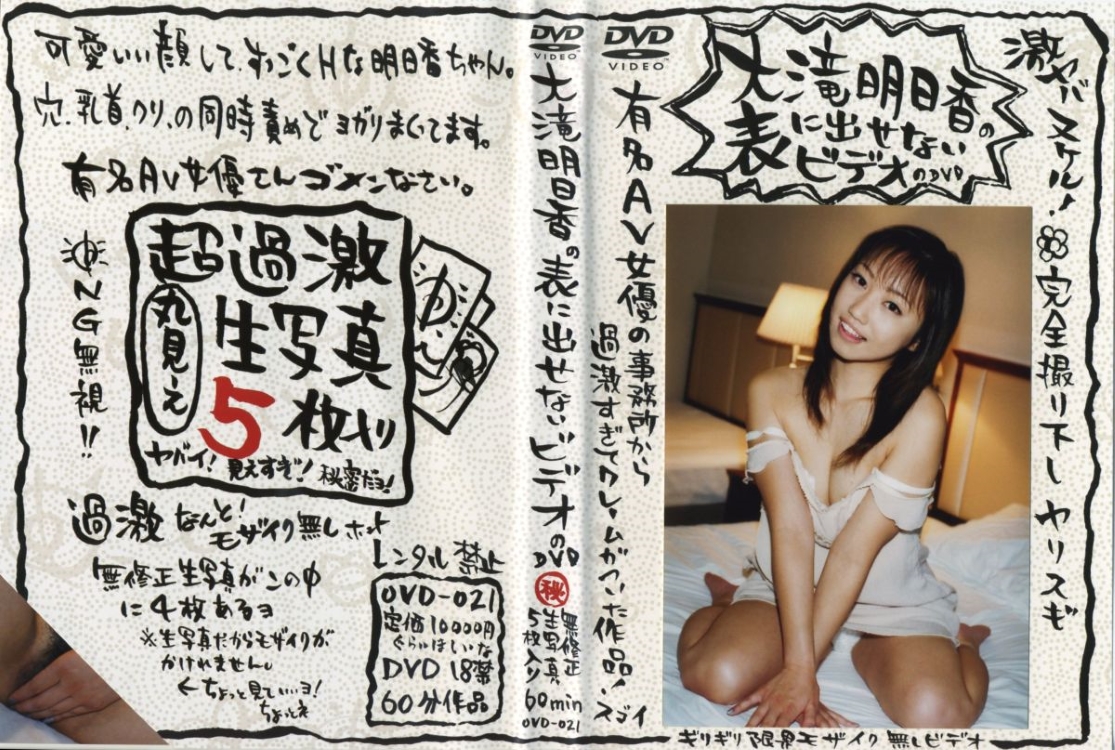 可愛いい顔して、すっごくHな明日香ちゃん。
穴、乳首、クリ、の同時責めでヨガりまくてます。
有名AV女優さんゴメンなさい。
NG無視!!
超過激
丸見え
生写真
5枚入り
ヤバイ!見えすぎ!秘密だヨ!
過激なんと!
モザイク無し
無修正生写真がこの中
に4枚あるヨ
※生写真だからモザイクが
かけれません。
←ちょっと見ていいヨ!
レンタル禁止
DVD-021
定価10000円
ぐらいほしいな
DVD 18禁
60分作品
DVD
VIDEO
大滝明日香の表に出せないビデオのDVD
㊙
無修正
生写真
5枚入り
60min
DVD-021
DVD
VIDEO
有名AV女優の事務所から
過激すぎてクレームがついた作品!スゴイ
大滝明日香の
表に出せない
ビデオのDVD
激ヤバヌケル!完全撮り下しヤリスギ
ギリギリ限界モザイク無しビデオ